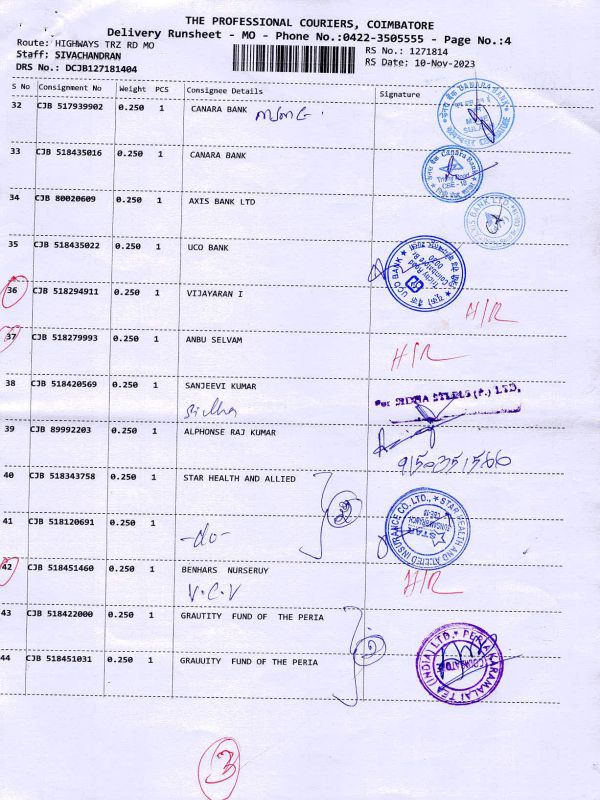 THE PROFESSIONAL COURIERS, COIMBATORE
Delivery Runsheet - MO - Phone No.:0422-3505555 - Page No.:4
Route: HIGHWAYS TRZ RD MO
RS No.: 1271814
Staff: SIVACHANDRAN
RS Date: 10-Nov-2023
DRS No.: DCJB127181404
S No Consignment No Weight PCS Consignee Details Signature
32 CJB 517939902 0.250 1 CANARA BANK
33 CJB 518435016 0.250 1 CANARA BANK
Canara Bank
CBE-18
34 CJB 80020609 0.250 1 AXIS BANK LTD
35 CJB 518435022 0.250 1 UCO BANK
UCO BANK
Trichy Road
36 CJB 518294911 0.250 1 VIJAYARAN I
H/R
37 CJB 518279993 0.250 1 ANBU SELVAM
H/R
38 CJB 518420569 0.250 1 SANJEEVI KUMAR
Sidha
For SIDHA STEELS (P.) LTD.
39 CJB 89992203 0.250 1 ALPHONSE RAJ KUMAR
9150351566
40 CJB 518343758 0.250 1 STAR HEALTH AND ALLIED
2
STAR HEALTH AND ALLIED INSURANCE CO. LTD.,
STAR
41 CJB 518120691 0.250 1
-do-
42 CJB 518451460 0.250 1 BENHARS NURSERUY
V.C.V
H/R
43 CJB 518422000 0.250 1 GRAUTITY FUND OF THE PERIA
2
44 CJB 518451031 0.250 1 GRAUUITY FUND OF THE PERIA
PERIA KARAMALAI TEA (INDIA) LTD.
3